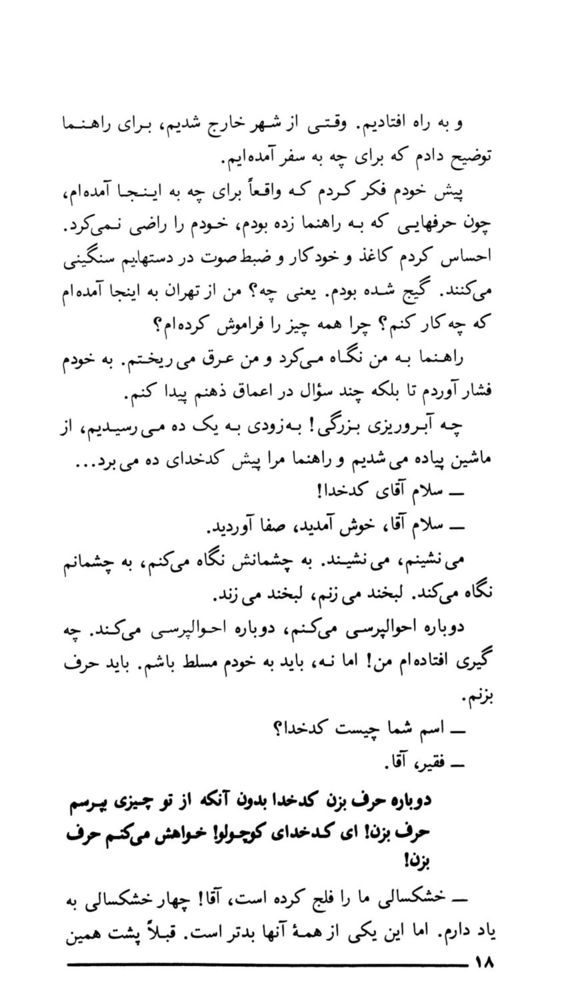 و به راه افتادیم. وقتی از شهر خارج شدیم، برای راهنما
توضیح دادم که برای چه به سفر آمده‌ایم.
پیش خودم فکر کردم که واقعاً برای چه به اینجا آمده‌ام،
چون حرفهایی که به راهنما زده بودم، خودم را راضی نمی‌کرد.
احساس کردم کاغذ و خودکار و ضبط‌صوت در دستهایم سنگینی
می‌کنند. گیج شده بودم. یعنی چه؟ من از تهران به اینجا آمده‌ام
که چه کار کنم؟ چرا همه چیز را فراموش کرده‌ام؟
راهنما به من نگاه می‌کرد و من عرق می‌ریختم. به خودم
فشار آوردم تا بلکه چند سؤال در اعماق ذهنم پیدا کنم.
چه آبروریزی بزرگی! به‌زودی به یک ده می‌رسیدیم، از
ماشین پیاده می‌شدیم و راهنما مرا پیش کدخدای ده می‌برد...
ــ سلام آقای کدخدا!
ــ سلام آقا، خوش آمدید، صفا آوردید.
می‌نشینم، می‌نشیند. به چشمانش نگاه می‌کنم، به چشمانم
نگاه می‌کند. لبخند می‌زنم، لبخند می‌زند.
دوباره احوالپرسی می‌کنم، دوباره احوالپرسی می‌کند. چه
گیری افتاده‌ام من! اما نه، باید به خودم مسلط باشم. باید حرف
بزنم.
ــ اسم شما چیست کدخدا؟
ــ فقیر، آقا.
دوباره حرف بزن کدخدا بدون آنکه از تو چیزی بپرسم
حرف بزن! ای کدخدای کوچولو! خواهش می‌کنم حرف
بزن!
ــ خشکسالی ما را فلج کرده است، آقا! چهار خشکسالی به
یاد دارم. اما این یکی از همهٔ آنها بدتر است. قبلاً پشت همین
۱۸